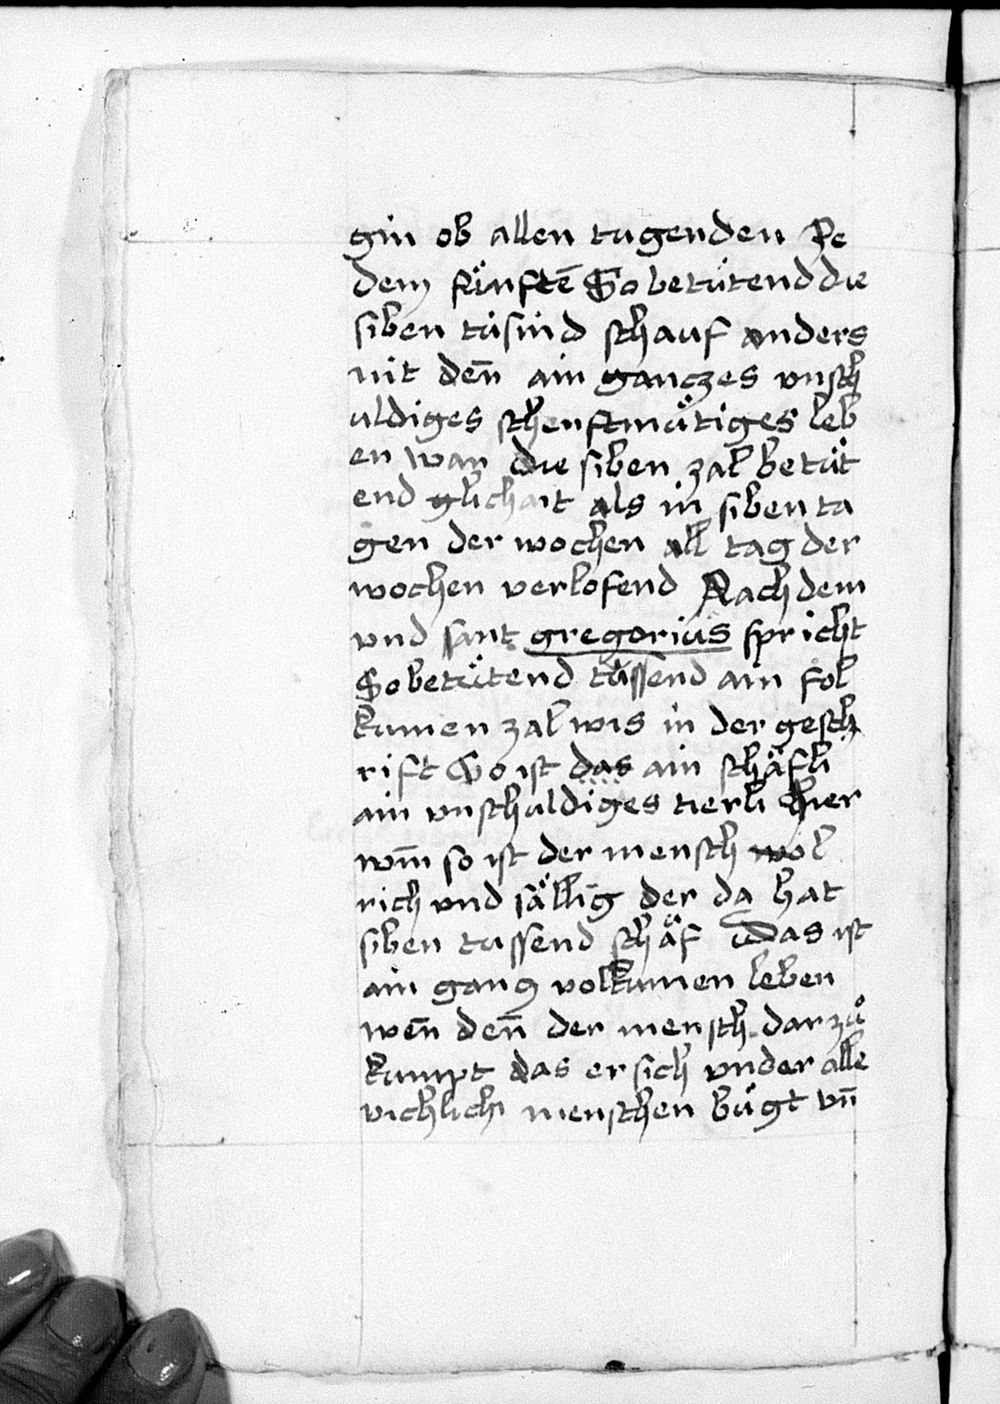 gin ob allen tugenden Ze
dem fünftē So betütend die
siben tüsind schauf anders
nit deñ ain ganczes vnsch
uldiges schenftmütiges leb
en wan die siben zal betüt
end glichait als in siben ta
gen der wochen all tag der
wochen verlofend Nach dem
vnd sant gregorius spricht
So betütend tüssend ain fol
kumen zal wis in der gesch
rift So ist das ain schäfli
ain vnschuldiges tierli hier
wm̄ so ist der mensch wol
rich vnd sällig der da hat
siben tussend schäf Das ist
ain gancz volkumen leben
weñ deñ der mensch dar zů
kumpt das er sich vnder alle
vichlichi menschen bügt vn̄